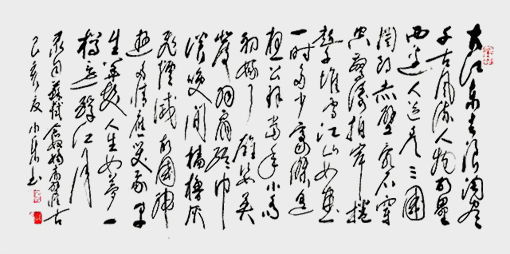 大江东去浪淘尽
千古风流人物故垒
西边人道是三国
周郎赤壁乱石穿
空惊涛拍岸捲
起千堆雪江山如画
一时多少豪杰遥
想公瑾当年小乔
初嫁了雄姿英
发羽扇纶巾
谈笑间樯橹灰
飞烟灭故国神
游多情应笑我早
生华发人生如梦一
樽还酹江月
录自苏轼念奴娇赤壁怀古
己亥夏小东书